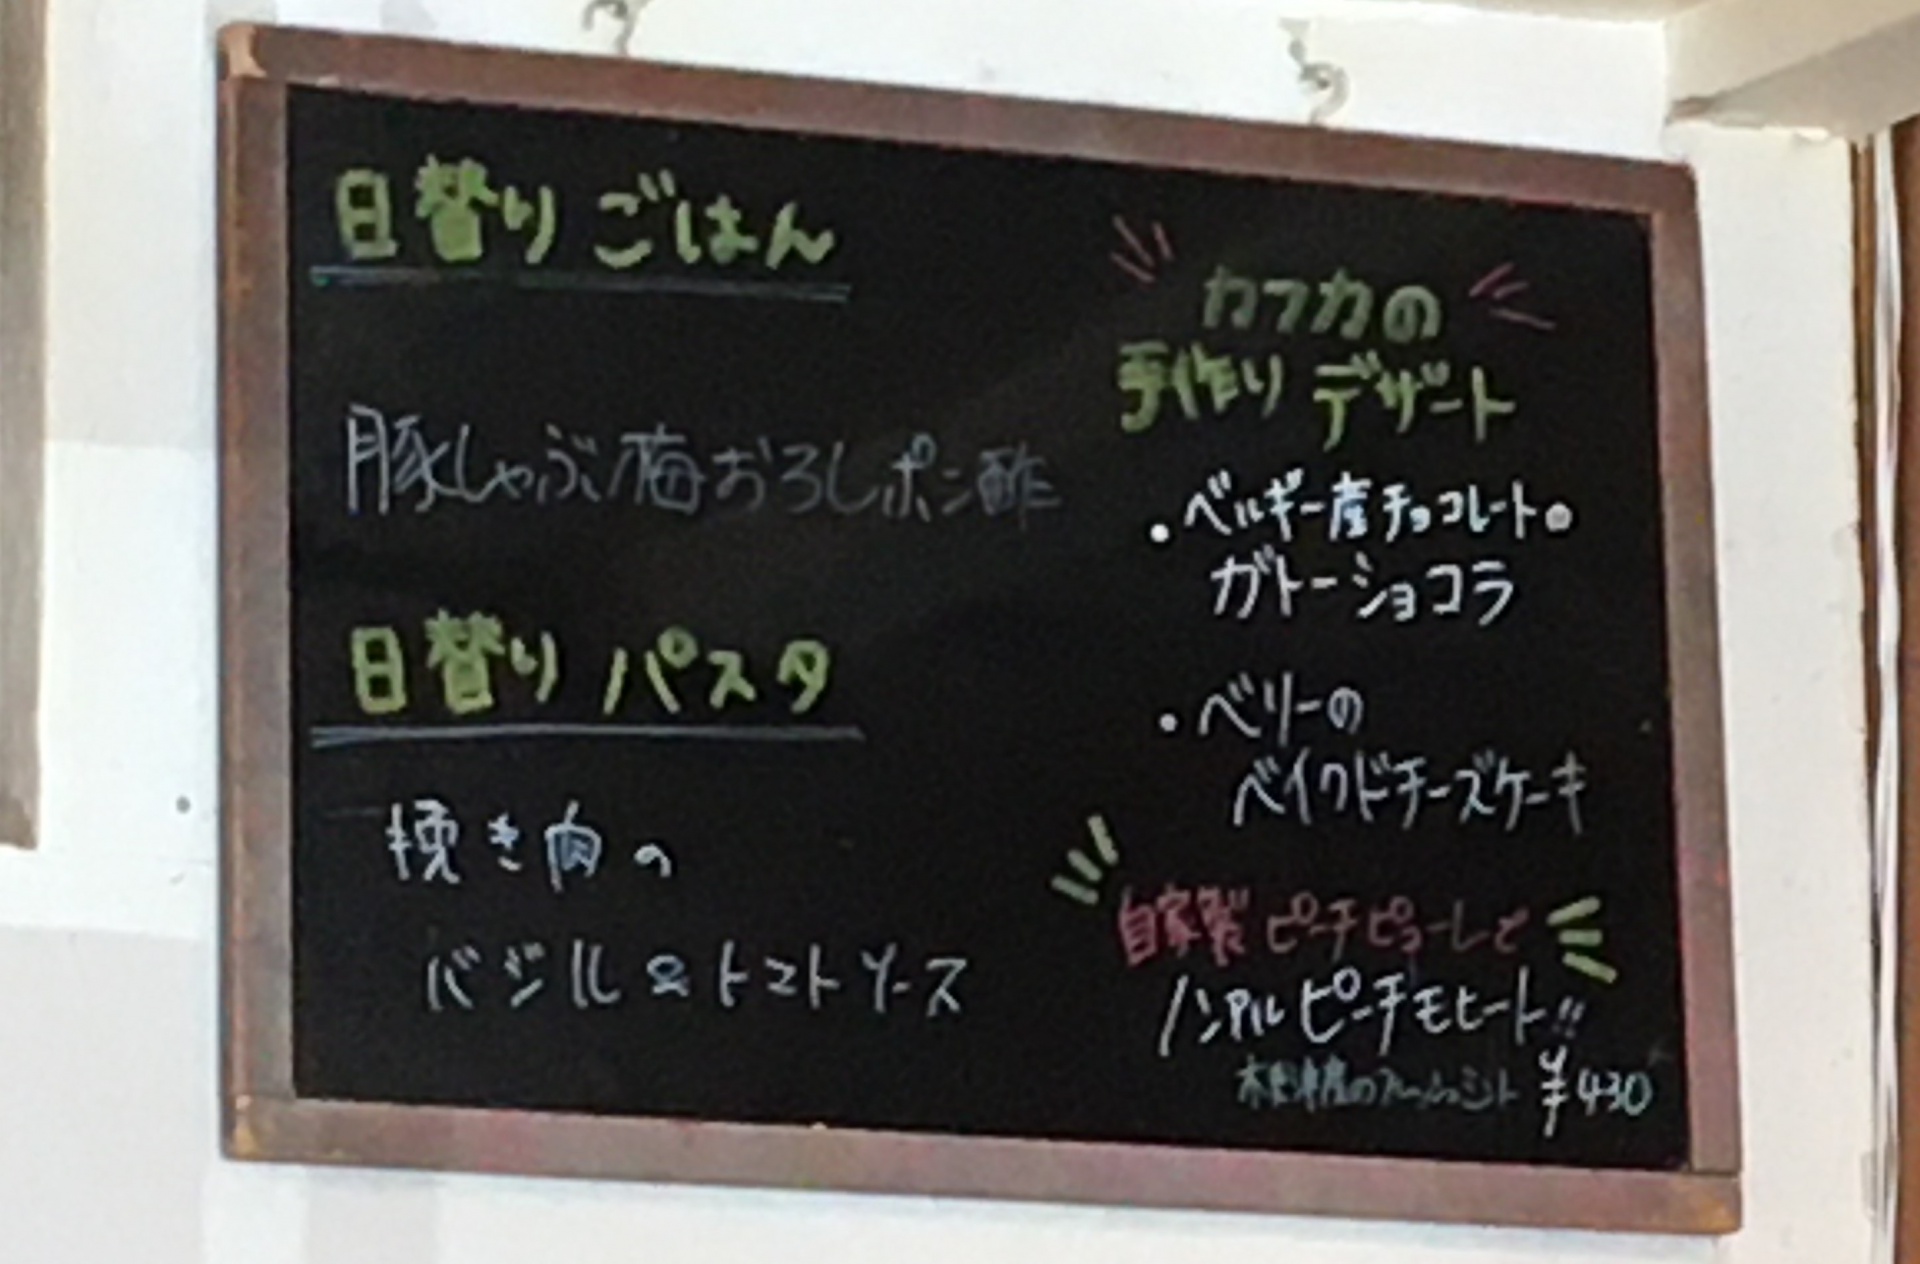 日替り ごはん
豚しゃぶ梅おろしポン酢
日替り パスタ
挽き肉の
バジル&トマトソース
カフカの
手作り デザート
・ベルギー産チョコレートの
ガトーショコラ
・ベリーの
ベイクドチーズケーキ
自家製 ピーチピューレと
ノンアルピーチモヒート!!
産のフレッシュミント ¥430